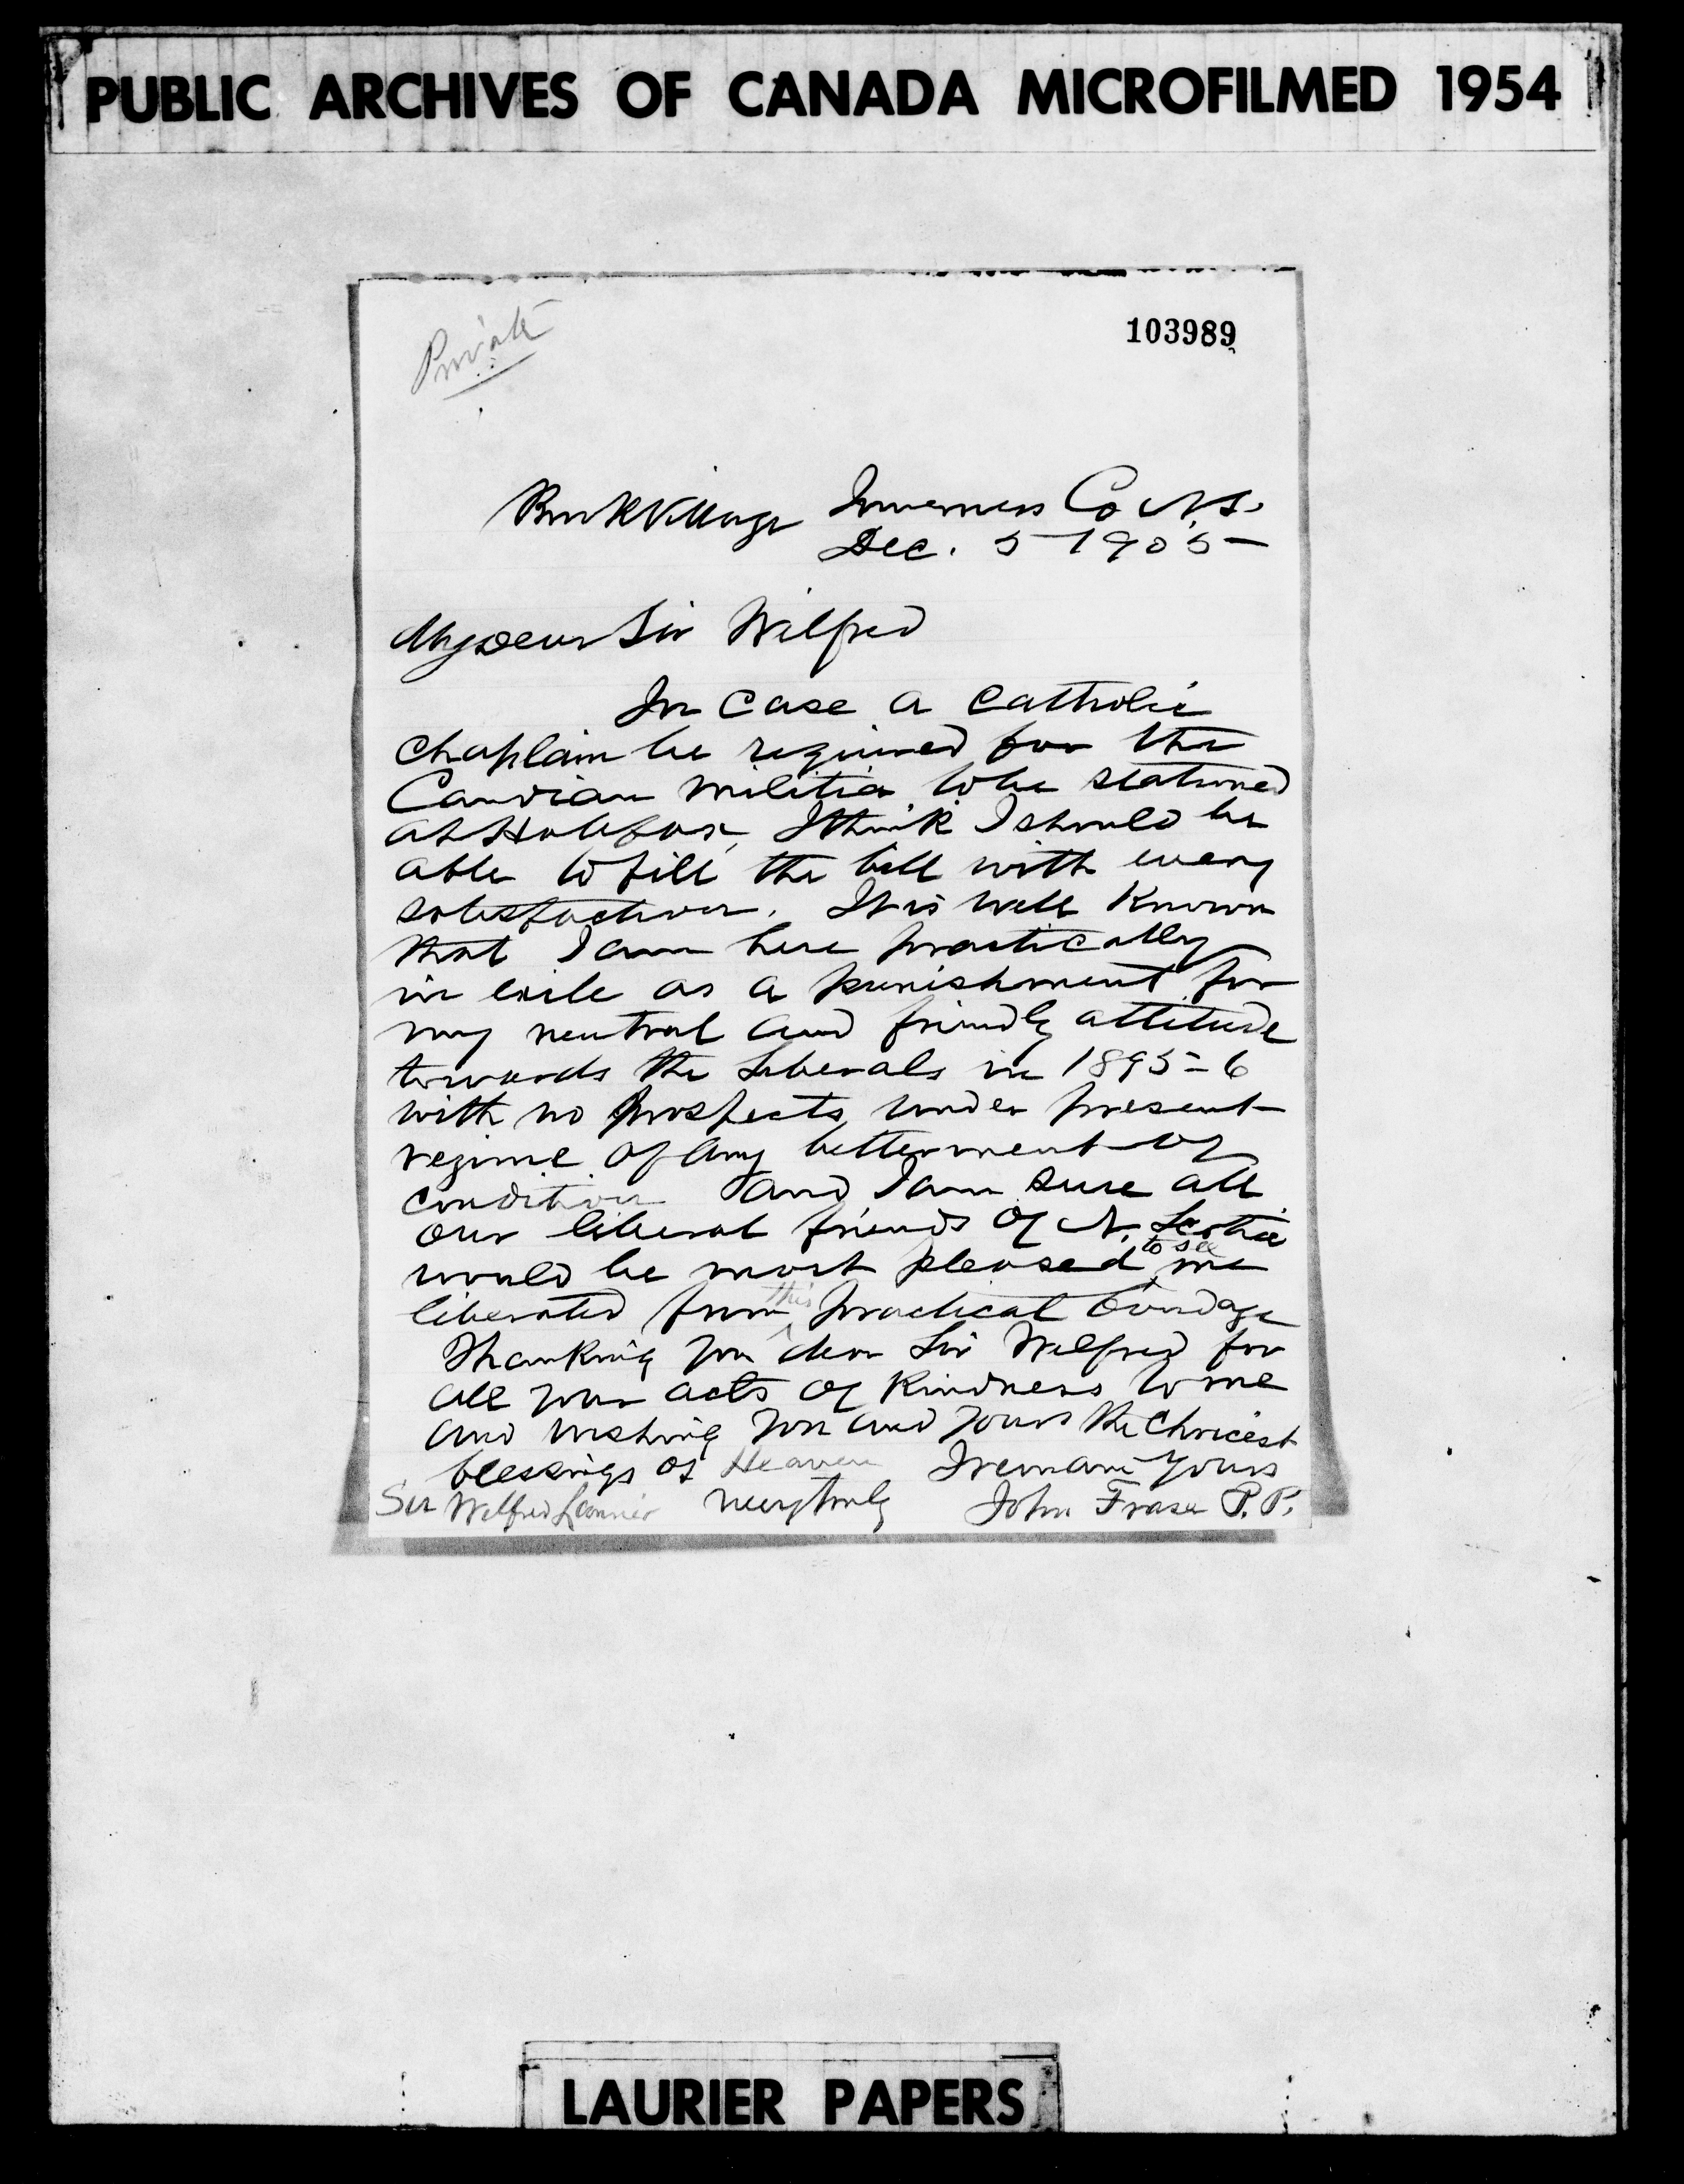 PUBLIC ARCHIVES OF CANADA MICROFILMED 1954
Private
103989
Brook Village Inverness Co N.S.
Dec. 5 1905
My dear Sir Wilfred
In case a Catholic
chaplain be required for the
Candian militia to be stationed
at Halifax, I think I should be
able to fill the bill with every
satisfaction. It is well known
that I am here practically
in exile as a punishment for
my neutral and friendly attitude
towards the Liberals in 1895-6
with no prospects under present
regime of any betterment of
condition and I am sure all
our liberal friends of N. Scotia
would be most pleased to see me
liberated from this practical bondage
Thanking you dear Sir Wilfred for
all your acts of kindness to me
and wishing you and yours the choicest
blessings of Heaven I remain yours
Sir Wilfred Laurier very truly John Fraser P.P.
LAURIER PAPERS